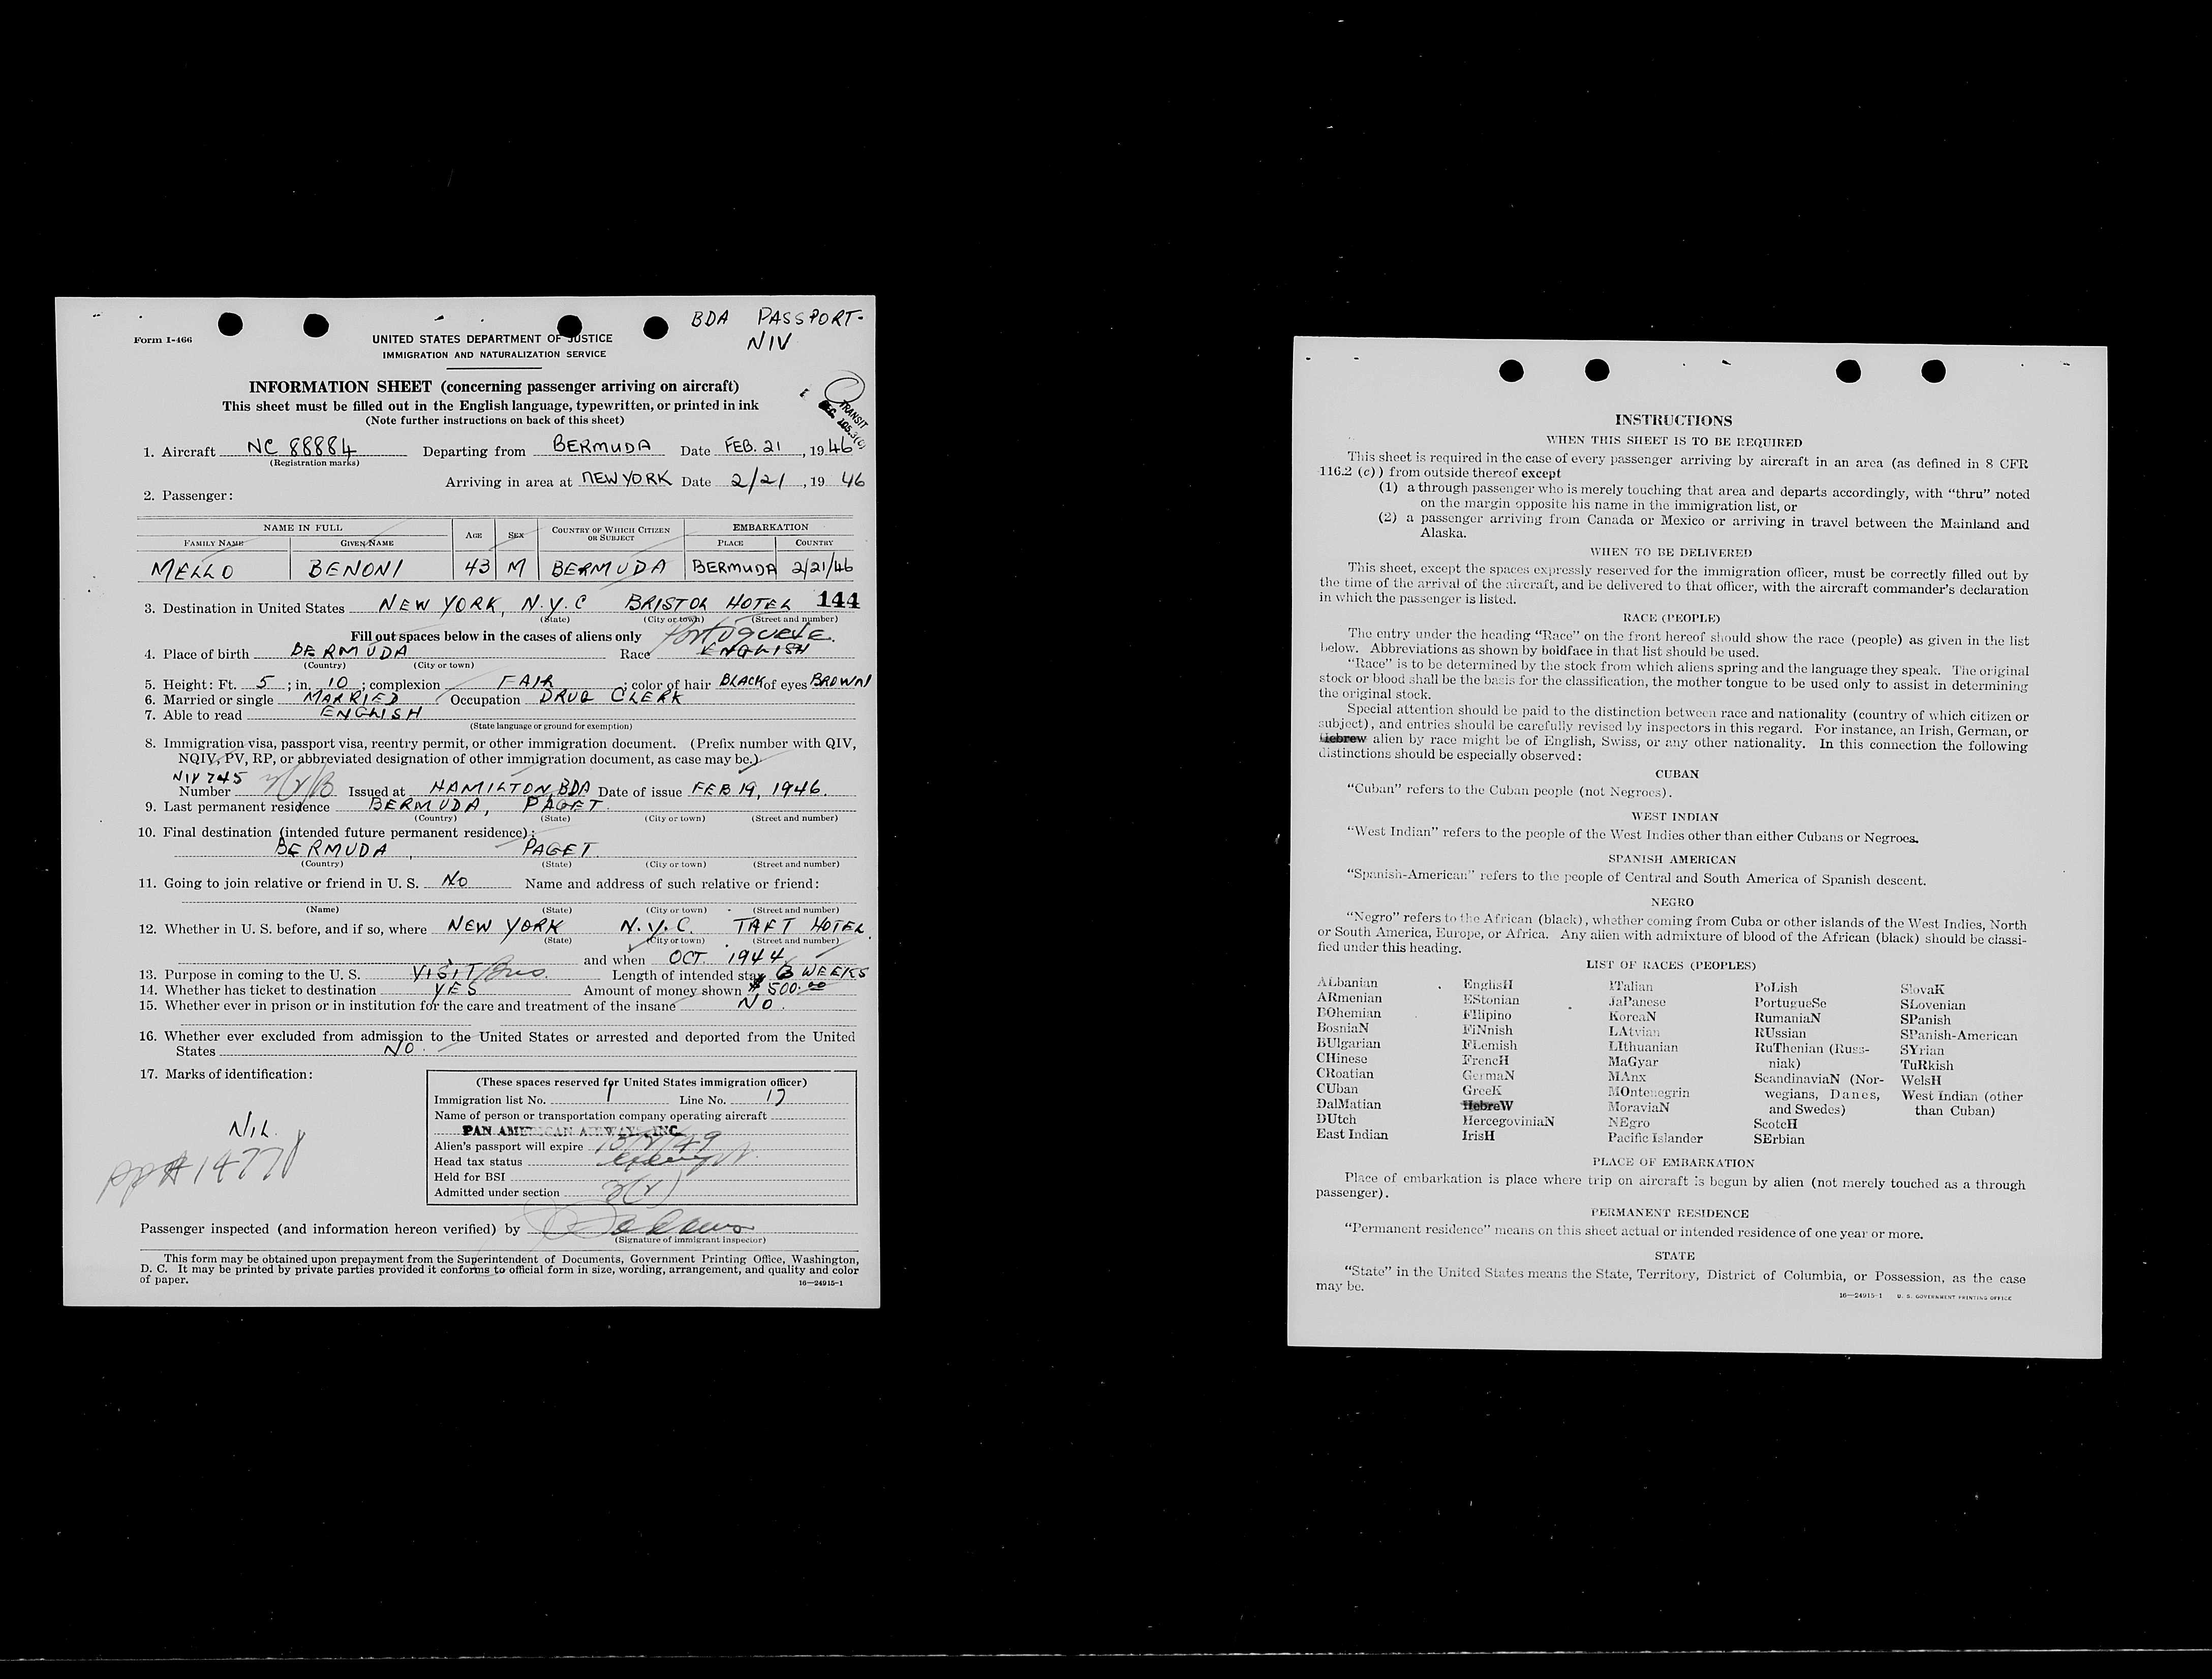 BDA PASSPORT-
NIV
Form I-466
UNITED STATES DEPARTMENT OF JUSTICE
IMMIGRATION AND NATURALIZATION SERVICE
INFORMATION SHEET (concerning passenger arriving on aircraft)
This sheet must be filled out in the English language, typewritten, or printed in ink
(Note further instructions on back of this sheet)
TRANSIT
SEC. 105.3(c)
1. Aircraft NC 88884 Departing from BERMUDA Date FEB. 21, 1946
(Registration marks)
Arriving in area at NEW YORK Date 2/21, 19 46
2. Passenger:
NAME IN FULL AGE SEX COUNTRY OF WHICH CITIZEN OR SUBJECT EMBARKATION
FAMILY NAME GIVEN NAME PLACE COUNTRY
MELLO BENONI 43 M BERMUDA BERMUDA 2/21/46
3. Destination in United States NEW YORK, N.Y.C BRISTOL HOTEL 144
(State) (City or town) (Street and number)
Fill out spaces below in the cases of aliens only Portuguese.
4. Place of birth BERMUDA Race ENGLISH
(Country) (City or town)
5. Height: Ft. 5; in. 10; complexion FAIR; color of hair BLACK of eyes BROWN
6. Married or single MARRIED Occupation DRUG CLERK
7. Able to read ENGLISH
(State language or ground for exemption)
8. Immigration visa, passport visa, reentry permit, or other immigration document. (Prefix number with QIV,
NQIV, PV, RP, or abbreviated designation of other immigration document, as case may be.)
NIV 745
Number Issued at HAMILTON, BDA Date of issue FEB 19, 1946.
9. Last permanent residence BERMUDA, PAGET.
(Country) (State) (City or town) (Street and number)
10. Final destination (intended future permanent residence):
BERMUDA, PAGET.
(Country) (State) (City or town) (Street and number)
11. Going to join relative or friend in U. S. NO Name and address of such relative or friend:
(Name) (State) (City or town) (Street and number)
12. Whether in U. S. before, and if so, where NEW YORK N.Y.C. TAFT HOTEL.
(State) (City or town) (Street and number)
and when OCT. 1944
13. Purpose in coming to the U. S. VISIT/Bus. Length of intended stay 3 WEEKS
14. Whether has ticket to destination YES Amount of money shown $500.00
15. Whether ever in prison or in institution for the care and treatment of the insane NO.
16. Whether ever excluded from admission to the United States or arrested and deported from the United
States NO.
17. Marks of identification:
NIL.
pp# 14778
(These spaces reserved for United States immigration officer)
Immigration list No. 1 Line No. 17
Name of person or transportation company operating aircraft
PAN AMERICAN AIRWAYS, INC.
Alien's passport will expire
Head tax status exempt
Held for BSI
Admitted under section 3(2)
Passenger inspected (and information hereon verified) by
(Signature of immigrant inspector)
This form may be obtained upon prepayment from the Superintendent of Documents, Government Printing Office, Washington,
D. C. It may be printed by private parties provided it conforms to official form in size, wording, arrangement, and quality and color
of paper.
16—24915-1
INSTRUCTIONS
WHEN THIS SHEET IS TO BE REQUIRED
This sheet is required in the case of every passenger arriving by aircraft in an area (as defined in 8 CFR
116.2 (c)) from outside thereof except
(1) a through passenger who is merely touching that area and departs accordingly, with "thru" noted
on the margin opposite his name in the immigration list, or
(2) a passenger arriving from Canada or Mexico or arriving in travel between the Mainland and
Alaska.
WHEN TO BE DELIVERED
This sheet, except the spaces expressly reserved for the immigration officer, must be correctly filled out by
the time of the arrival of the aircraft, and be delivered to that officer, with the aircraft commander's declaration
in which the passenger is listed.
RACE (PEOPLE)
The entry under the heading "Race" on the front hereof should show the race (people) as given in the list
below. Abbreviations as shown by boldface in that list should be used.
"Race" is to be determined by the stock from which aliens spring and the language they speak. The original
stock or blood shall be the basis for the classification, the mother tongue to be used only to assist in determining
the original stock.
Special attention should be paid to the distinction between race and nationality (country of which citizen or
subject), and entries should be carefully revised by inspectors in this regard. For instance, an Irish, German, or
Hebrew alien by race might be of English, Swiss, or any other nationality. In this connection the following
distinctions should be especially observed:
CUBAN
"Cuban" refers to the Cuban people (not Negroes).
WEST INDIAN
"West Indian" refers to the people of the West Indies other than either Cubans or Negroes.
SPANISH AMERICAN
"Spanish-American" refers to the people of Central and South America of Spanish descent.
NEGRO
"Negro" refers to the African (black), whether coming from Cuba or other islands of the West Indies, North
or South America, Europe, or Africa. Any alien with admixture of blood of the African (black) should be classi-
fied under this heading.
LIST OF RACES (PEOPLES)
ALbanian EnglisH ITalian PoLish SlovaK
ARmenian EStonian JaPanese PortugueSe SLovenian
BOhemian FIlipino KoreaN RumaniaN SPanish
BosniaN FiNnish LAtvian RUssian SPanish-American
BUlgarian FLemish LIthuanian RuThenian (Russ- SYrian
CHinese FrencH MaGyar niak) TuRkish
CRoatian GermaN MAnx ScandinaviaN (Nor- WelsH
CUban GreeK MOntenegrin wegians, Danes, West Indian (other
DalMatian HebreW MoraviaN and Swedes) than Cuban)
DUtch HercegoviniaN NEgro ScotcH
East Indian IrisH Pacific Islander SErbian
PLACE OF EMBARKATION
Place of embarkation is place where trip on aircraft is begun by alien (not merely touched as a through
passenger).
PERMANENT RESIDENCE
"Permanent residence" means on this sheet actual or intended residence of one year or more.
STATE
"State" in the United States means the State, Territory, District of Columbia, or Possession, as the case
may be.
16—24915-1 U. S. GOVERNMENT PRINTING OFFICE